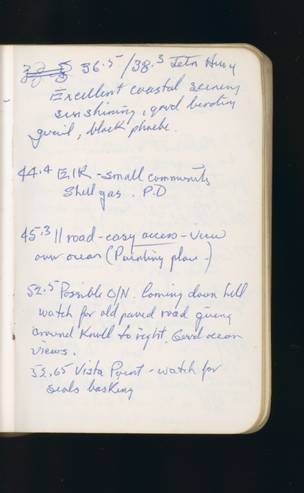 36.5/38.5 Jctn Hwy
Excellent coastal scenery
sunshining, good birding
quail, black phoebe.
44.4 Elk - small community
Shell gas. P.O
45.3 11 road - easy access - view
over ocean (Painting place.)
52.5 Possible O/N. Coming down hill
watch for old paved road going
around Knoll to right. Good ocean
views.
52.65 Vista Point - watch for
seals basking